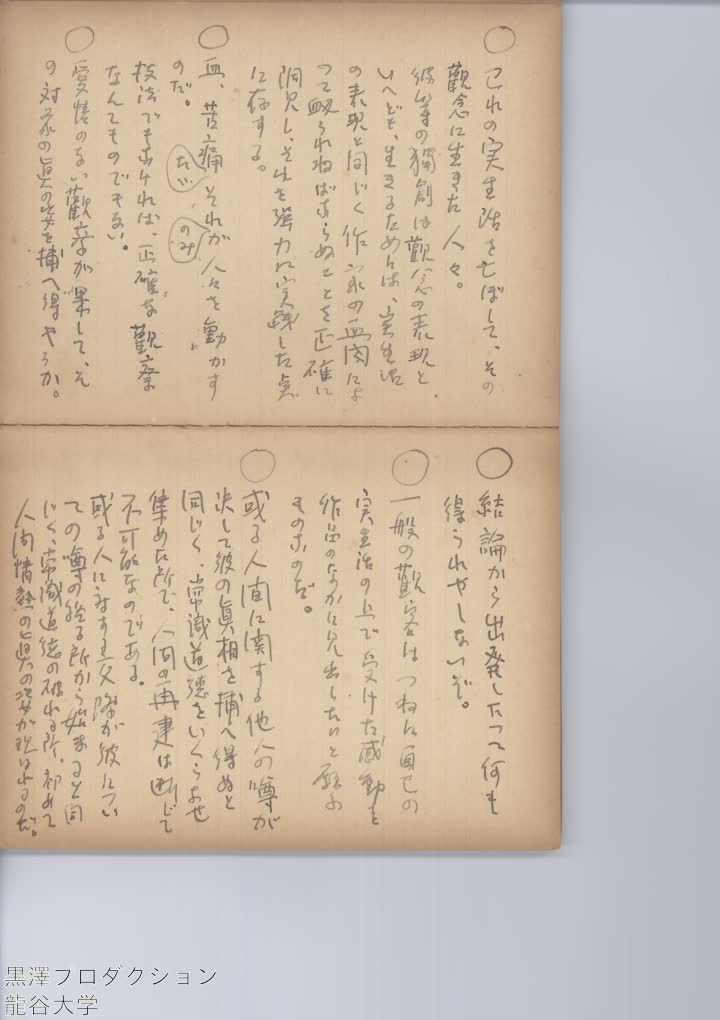 ○ 己れの実生活を亡ぼして、その
観念に生きた人々。
彼等の獨創は觀念の表現と
いへども、生きるためには、実生活
の表現と同じく作家の血肉によ
つて與られねばならぬことを正確に
洞見し、それを強力に実践した点
に存する。
○ 血、苦痛、それが人々を動かす
たゞ のみ
のだ。
技法でもなければ、正確な觀察
なんてものでもない。
○ 愛情のない觀察が果して、そ
の対象の眞の姿を捕へ得やうか。
○ 結論から出発したつて何も
得られやしないぞ。
○ 一般の觀客はつねに自己の
実生活の上で受けた感動を
作品のなかに見出したいと願ふ
ものなのだ。
○ 或る人間に関する他人の噂が
決して彼の眞相を捕へ得ぬと
同じく、常識道徳をいくらよせ
集めた所で、人間の再建は断じて
不可能なのである。
或る人に対する交際が彼につい
ての噂の終る所から始まると同
じく、常識道徳の破れる所、初めて
人間情熱の眞の姿が現はれるのだ。
黒澤プロダクション
龍谷大学